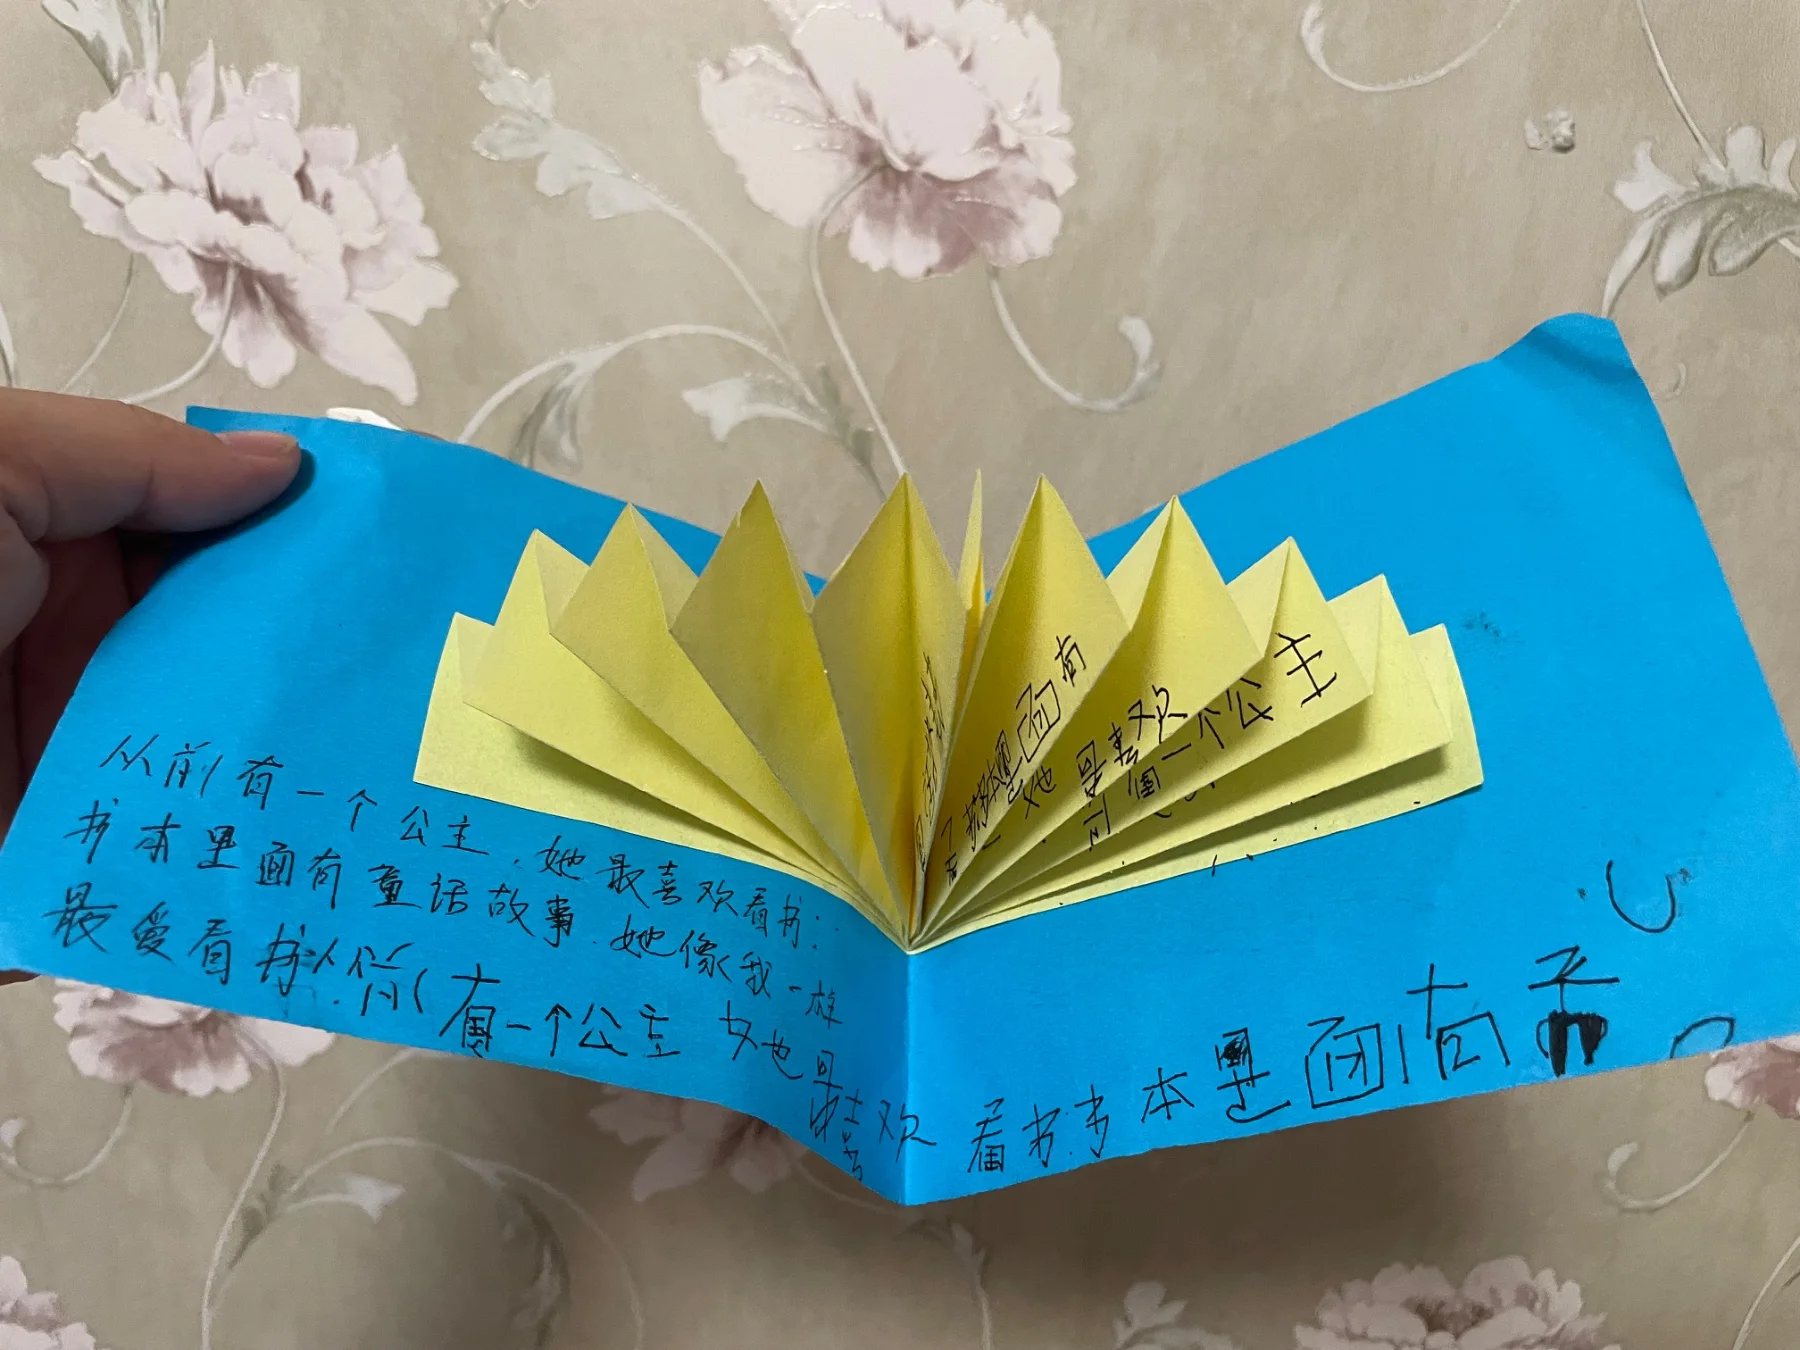 从前有一个公主.她最喜欢看书.
书本里面有童话故事.她像我一样
最爱看书.从前有一个公主 她最喜欢看书.书本里面有
里面有
她最喜欢
一个公主